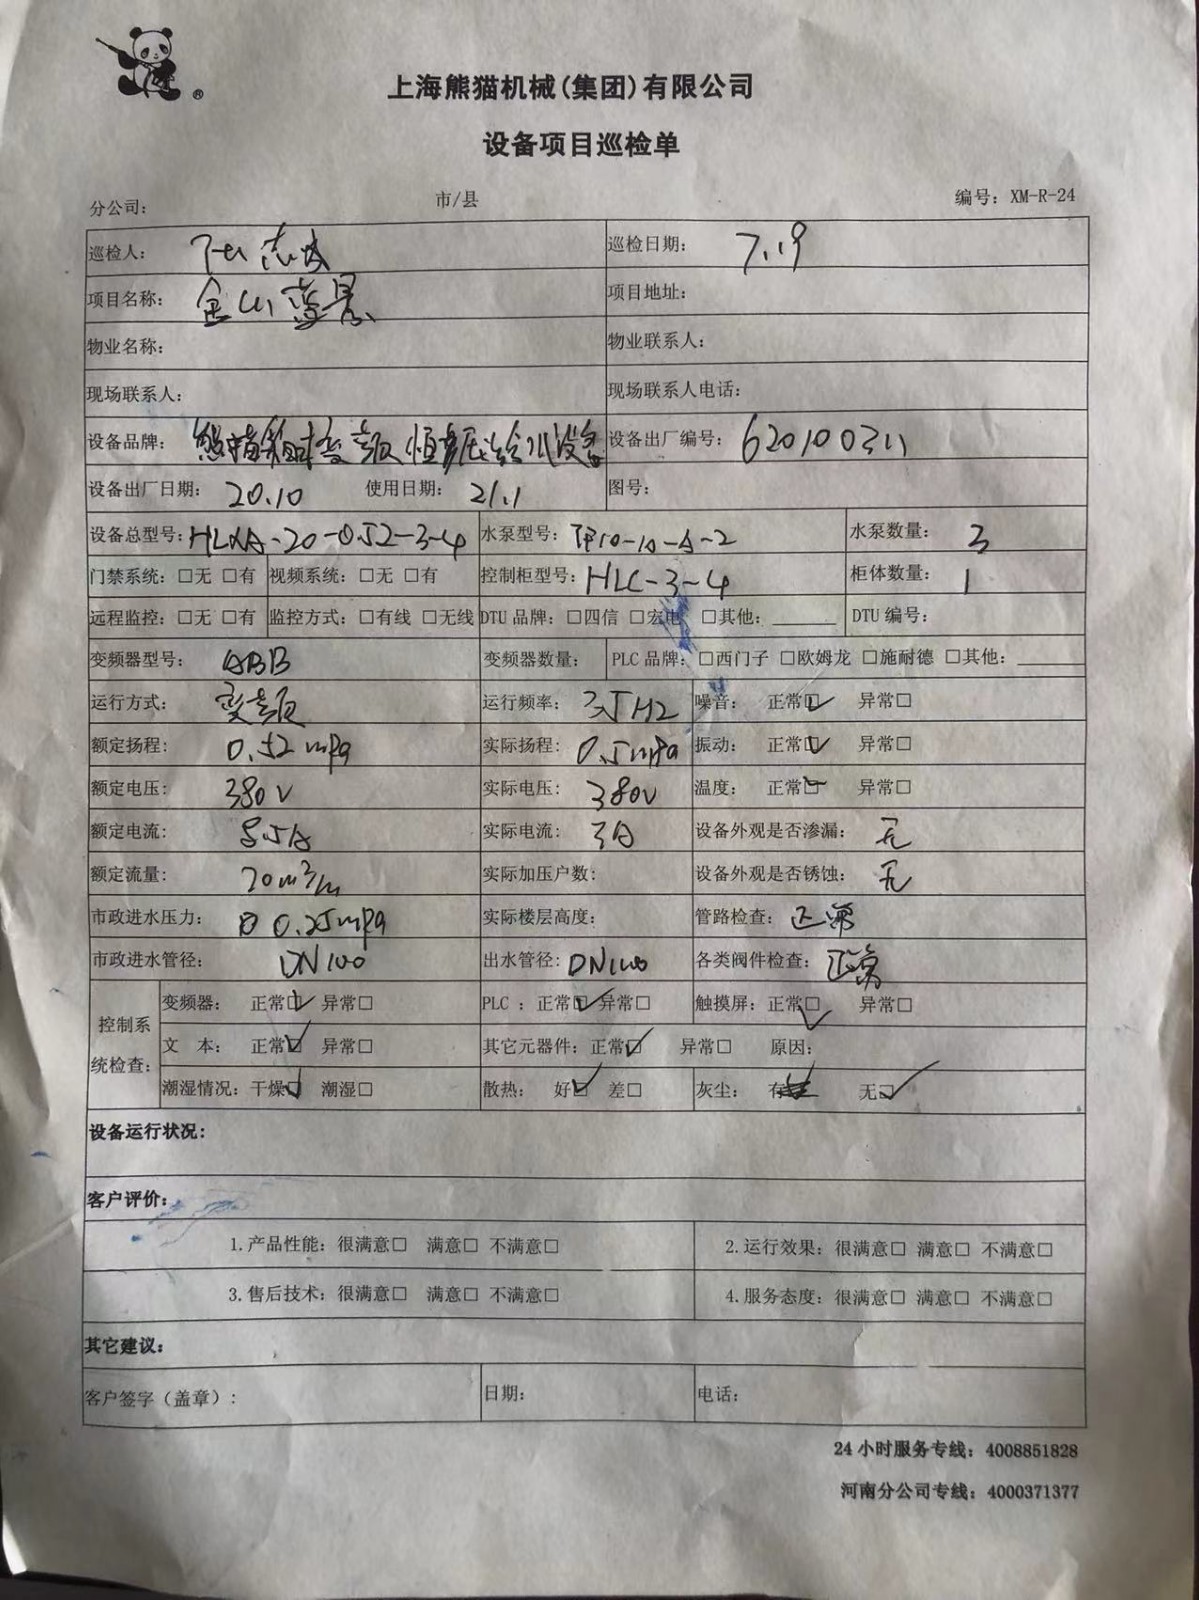 上海熊猫机械(集团)有限公司
设备项目巡检单
分公司: 市/县 编号: XM-R-24
巡检人: 巡检日期: 7.19
项目名称: 金山蓝景 项目地址:
物业名称: 物业联系人:
现场联系人: 现场联系人电话:
设备品牌: 熊猫 变频恒压给水设备 设备出厂编号: 620100311
设备出厂日期: 20.10 使用日期: 21.1 图号:
设备总型号: HLXA-20-052-3-4 水泵型号: 10-10-A-2 水泵数量: 3
门禁系统: □无 □有 视频系统: □无 □有 控制柜型号: HLC-3-4 柜体数量: 1
远程监控: □无 □有 监控方式: □有线 □无线 DTU 品牌: □四信 □宏电 □其他: ______ DTU 编号:
变频器型号: ABB 变频器数量: PLC 品牌: □西门子 □欧姆龙 □施耐德 □其他: ______
运行方式: 变频 运行频率: 35HZ 噪音: 正常☑ 异常□
额定扬程: 0.52mpa 实际扬程: 0.5mpa 振动: 正常☑ 异常□
额定电压: 380V 实际电压: 380V 温度: 正常☑ 异常□
额定电流: 8.5A 实际电流: 3A 设备外观是否渗漏: 无
额定流量: 20m³/m 实际加压户数: 设备外观是否锈蚀: 无
市政进水压力: 0.25mpa 实际楼层高度: 管路检查: 正常
市政进水管径: DN100 出水管径: DN100 各类阀件检查: 正常
控制系统检查: 变频器: 正常☑ 异常□ PLC : 正常☑ 异常□ 触摸屏: 正常☑ 异常□
文 本: 正常☑ 异常□ 其它元器件: 正常☑ 异常□ 原因:
潮湿情况: 干燥☑ 潮湿□ 散热: 好☑ 差□ 灰尘: 有 无☑
设备运行状况:
客户评价:
1.产品性能: 很满意□ 满意□ 不满意□ 2.运行效果: 很满意□ 满意□ 不满意□
3.售后技术: 很满意□ 满意□ 不满意□ 4.服务态度: 很满意□ 满意□ 不满意□
其它建议:
客户签字（盖章）: 日期: 电话:
24 小时服务专线: 4008851828
河南分公司专线: 4000371377